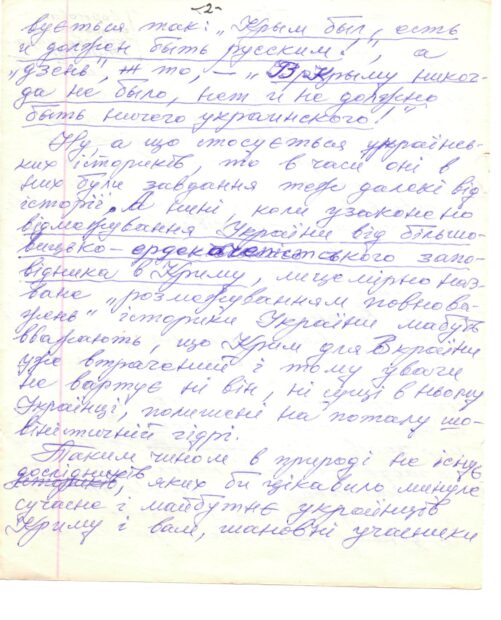 -2-
вується так: „Крым был, есть
и должен быть русским!", а
„дзень", то, — „В Крыму никог-
да не было, нет и не должно
быть ничего украинского!"
Ну, а що стосується українсь-
ких істориків, то в часи оні в
них були завдання теж далекі від
історії. А нині, коли узаконено
відмежування України від більшо-
вицько-ординського запо-
відника в Криму, лицемірно наз-
ване „розмежуванням повнова-
жень" історики України мабуть
вважають, що Крим для Вкраїни
уже втрачений і тому уваги
не вартує ні він, ні сущі в ньому
Українці, полишені на поталу шо-
віністичній гідрі.
Таким чином в природі не існує
дослідників,
істориків, яких би цікавило минуле
сучасне і майбутнє українців
Криму і вам, шановні учасники